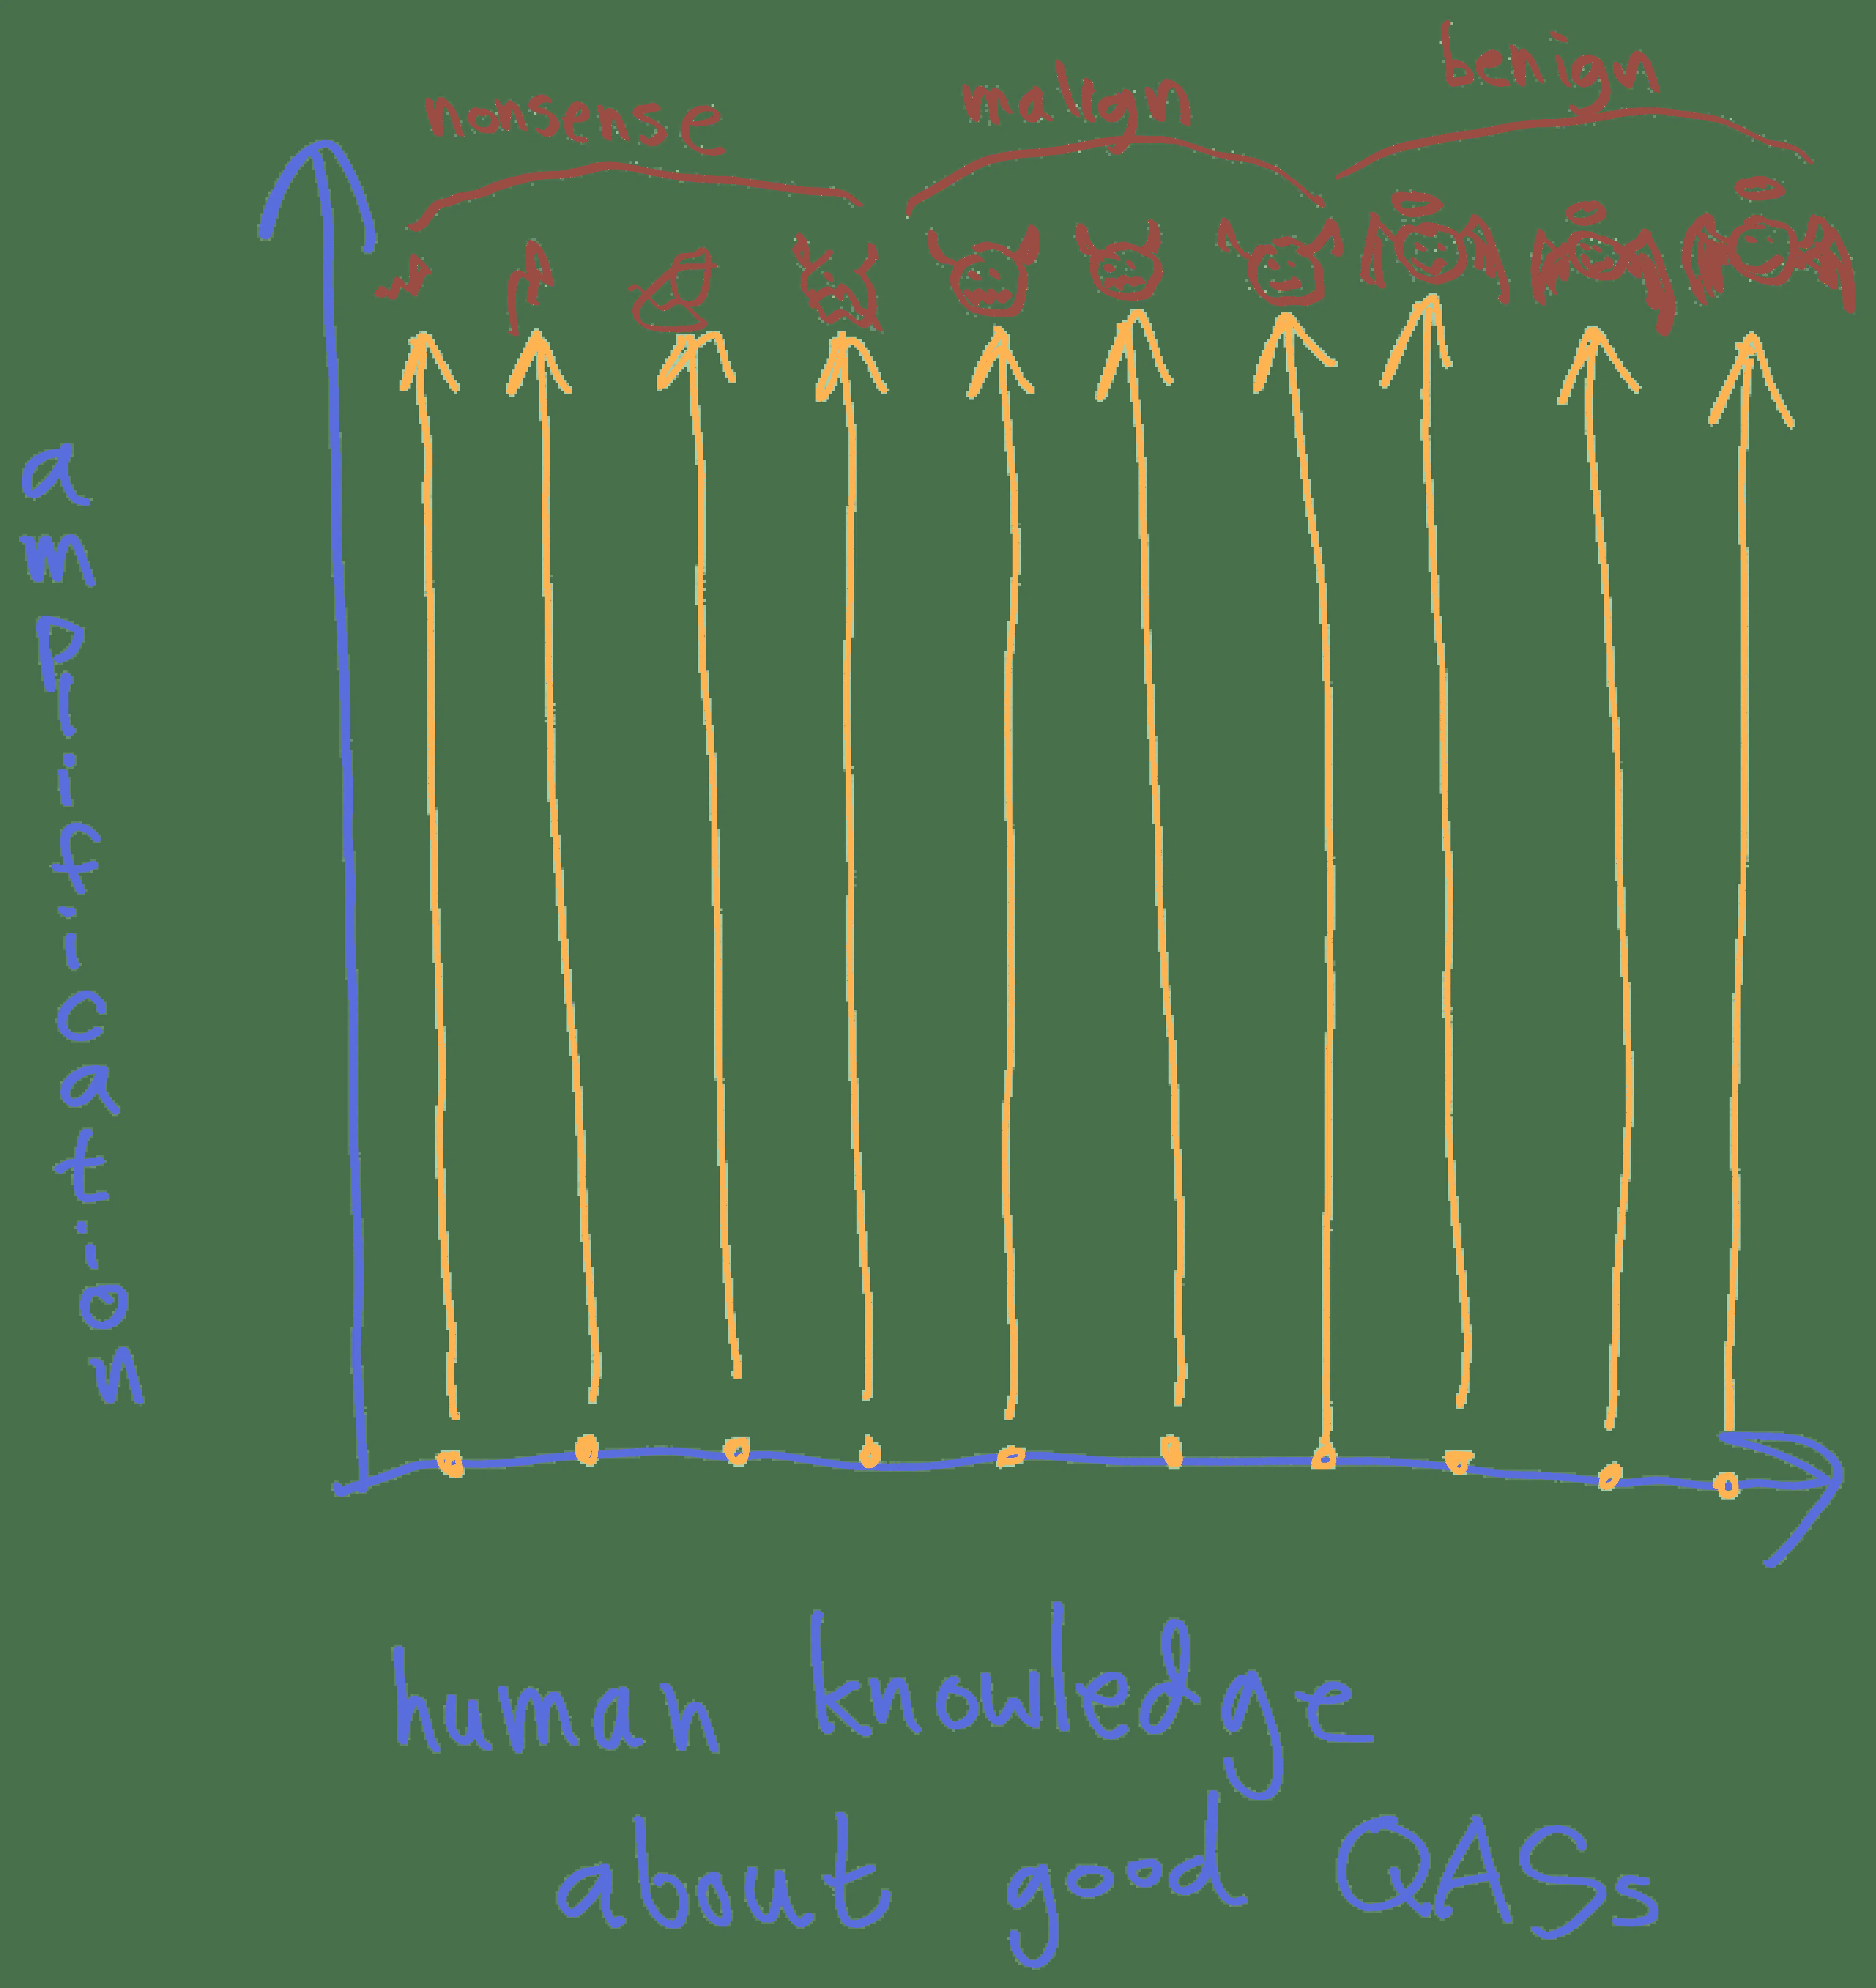 nonsense
malign
benign
amplification
human knowledge
about good QASs